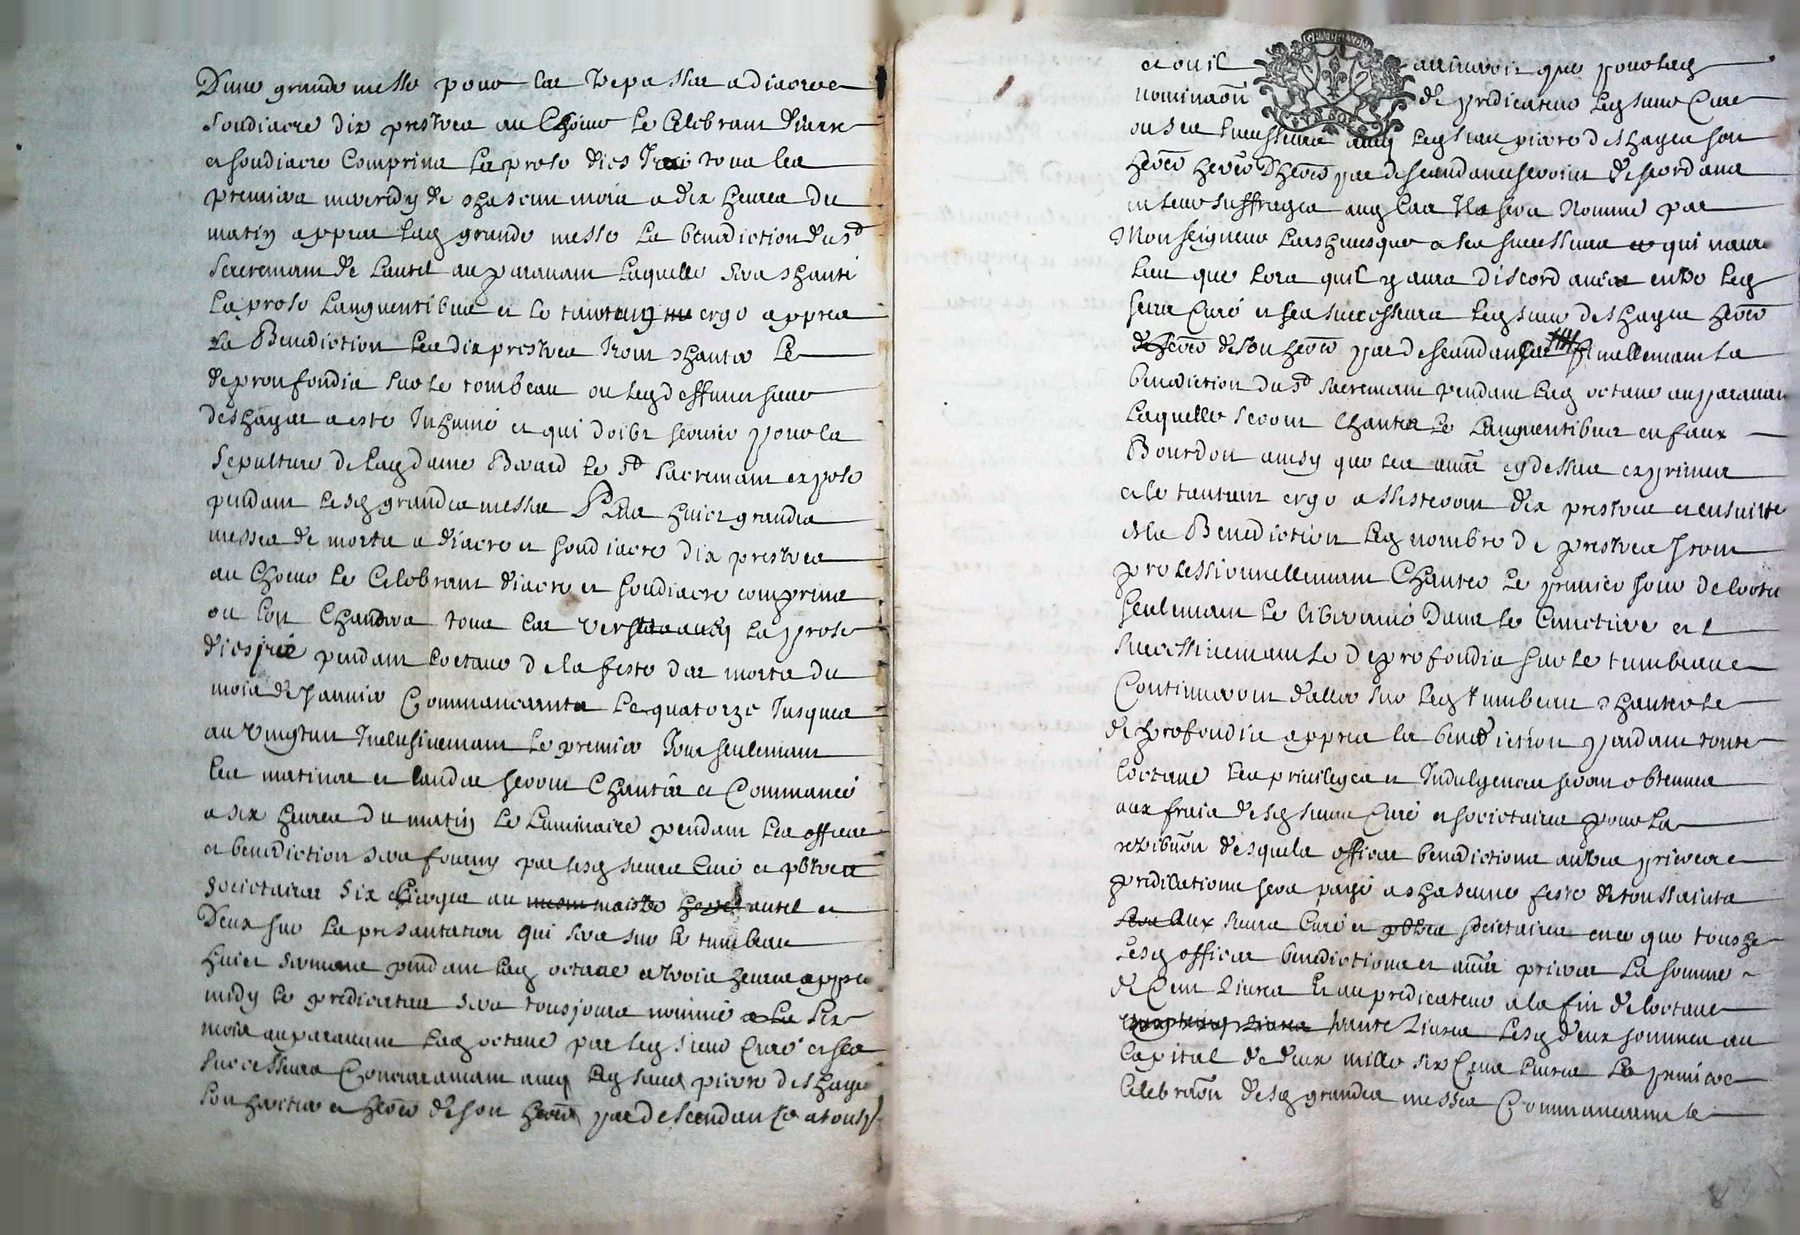 D'une grande messe pour les trepasses a diacre
soudiacre dix prestres au Choeur le Celebrant diacre
et soudiacre comprins la prose dies Irae tous les
premiers mercredy de chascun mois a dix heures du
matin appres lad grande messe la benediction du st
sacremant de lautel auparavant laquelle sera chanté
la prose Languentibus et le tantum ergo appres
la Benediction les dix prestres Iront chanter le
de proufondis sur le tombeau ou led deffunt sieur
deshayes a esté Inhumé et qui doibt servir pour la
sepulture de lad dame Berard le st sacremant exposé
pendant lesd grandes messes Plus huict grandes
messes de morts a diacre et soudiacre dix prestres
au Choeur le Celebrant diacre et soudiacre comprins
ou lon Chantera tous les versets la prose
dies irae pendant loctave de la feste des morts du
mois de Janvier Commancante le quatorze Jusques
au vingtun Inclusivemant le premier Jour seulemant
les matines et laudes seront Chantés et Commancé
a six heures du matin Le Luminaire pendant les offices
et benediction sera fourny par lesd sieurs Curé et pbtres
societaires six cierges au autel et
Deux sur la presantation qui sera sur le tumbeau
huict sermons pendant lad octave a trois heures appres
midy le predicateur sera tousjours nommé six
mois auparavant lad octave par led sieur Curé et ses
successeurs Conjointement avec led sieur pierre deshayes
son heritier et heres de son heres par descendance a tousj
et ou il arriveroit que pour lad
nominaon de predicateur led sieur Curé
ou ses successeurs avec led sieur pierre deshayes son
heres par descendance seroint discordans
en leur suffrages aud cas Il sera Nommé par
Monseigneur Larchevesque a ses successeurs qui naura
lieu que lors quil y aura discordance entre led
sieur Curé et ses successeurs led sieur deshayes heres
de son heres par descendance finallemant la
benediction du st sacremant pendant lad octave auparavant
laquelle seront chantés le Languentibus en faux
Bourdon ainsy que les autres cy dessus exprimés
et le tantum ergo assisteront dix prestres et ensuitte
de la Benediction led nombre de prestres Iront
processionnellemant Chanter le premier jour de loctave
seulemant le libera me Dans le Cimetiere et
successivemant le de profondis sur le tumbeau et
Continueront daller sur led tumbeau chanter le
de profondis appres la benediction pendant toute
loctave Les privileges et Indulgences seront obtenues
aux frais desd sieurs Curé et societaires pour la
retribuon desquels offices benedictions autres prieres et
predications sera payé a chascune feste de toussaints
aux sieurs Curé et societaires en ce que touche
lesd offices benedictions et autres prieres la somme
de Cent Livres Et au predicateur a la fin de loctave
trante Livres Lesd deux sommes au
Capital de deux mille six Cens livres La premiere
Celebraon desd grandes messes Commancant le